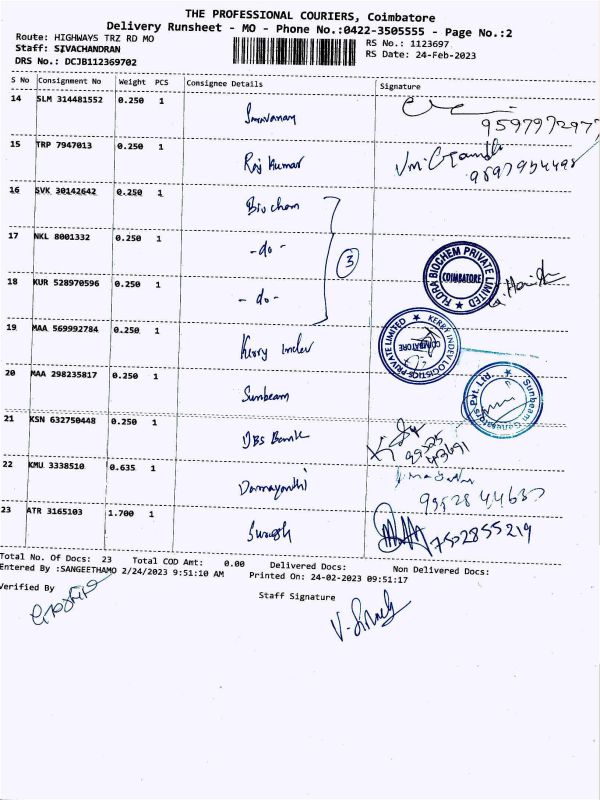 THE PROFESSIONAL COURIERS, Coimbatore
Delivery Runsheet - MO - Phone No.:0422-3505555 - Page No.:2
Route: HIGHWAYS TRZ RD MO
RS No.: 1123697
Staff: SIVACHANDRAN
RS Date: 24-Feb-2023
DRS No.: DCJB112369702
S No Consignment No Weight PCS Consignee Details Signature
14 SLM 314481552 0.250 1 Saravanam
9597972977
15 TRP 7947013 0.250 1 Raj Kumar
16 SVK 30142642 0.250 1 Biochem
17 NKL 8001332 0.250 1 -do- 3
FLORA BIOCHEM PRIVATE LIMITED
COIMBATORE
18 KUR 528970596 0.250 1 -do-
19 MAA 569992784 0.250 1 Kerry Indev
KERRY INDEV LOGISTICS PRIVATE LIMITED
COIMBATORE
20 MAA 298235817 0.250 1 Sunbeam
Sunbeam Generators Pvt. Ltd
21 KSN 632750448 0.250 1 DBS Bank
22 KMU 3338510 0.635 1 Damayanthi
23 ATR 3165103 1.700 1 Suresh
7502855219
Total No. Of Docs: 23 Total COD Amt: 0.00 Delivered Docs: Non Delivered Docs:
Entered By :SANGEETHAMO 2/24/2023 9:51:10 AM Printed On: 24-02-2023 09:51:17
Verified By
Staff Signature